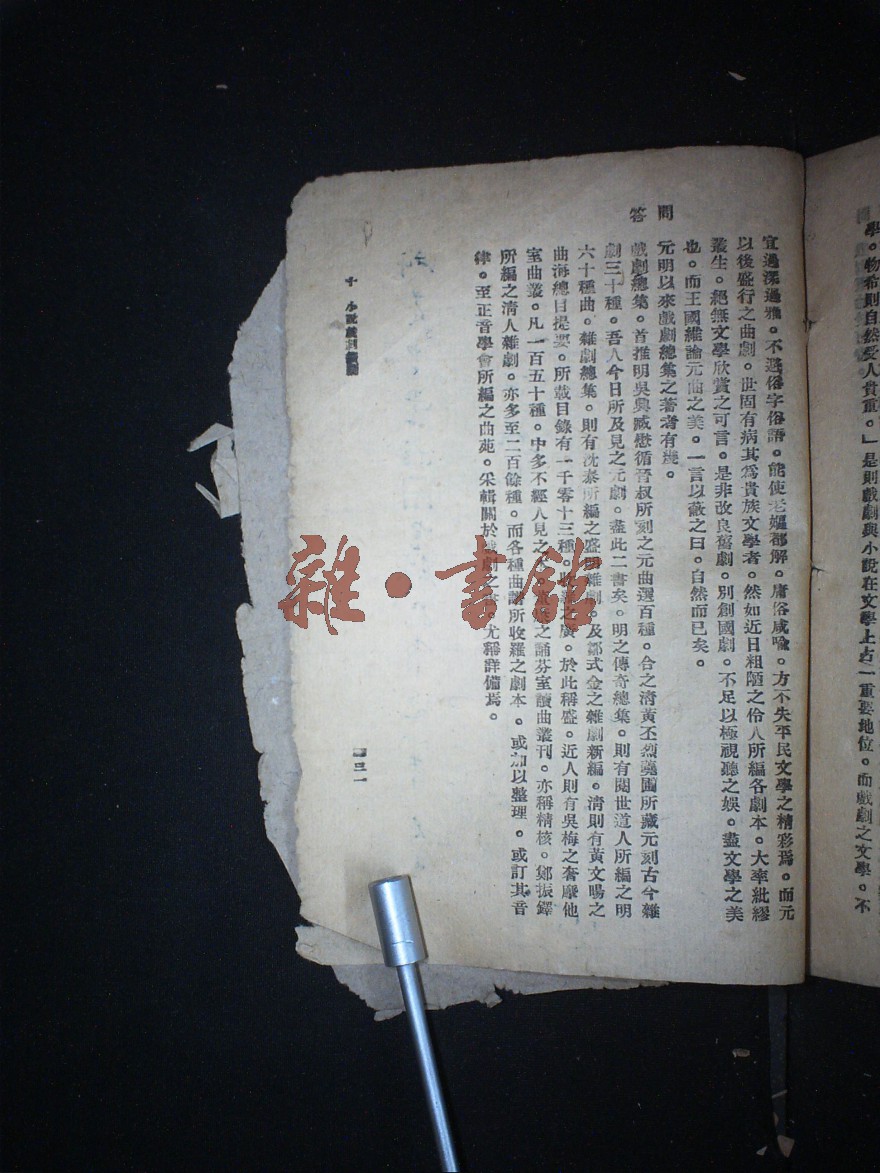 學。物希則自然受人貴重。」是則戲劇與小說在文學上占一重要地位。而戲劇之文學。不
宜過深過雅。不避俗字俗語。能使老嫗都解。庸俗咸喩。方不失平民文學之精彩焉。而元
以後盛行之曲劇。世固有病其爲貴族文學者。然如近日粗陋之伶人所編各劇本。大率紕繆
叢生。絕無文學欣賞之可言。是非改良舊劇。別創國劇。不足以極視聽之娛。盡文學之美
也。而王國維論元曲之美。一言以蔽之曰。自然而已矣。
問 元明以來戲劇總集之著者有幾。
答 戲劇總集。首推明吳興臧懋循晉叔所刻之元曲選百種。合之淸黃丕烈蕘圃所藏元刻古今雜
劇三十種。吾人今日所及見之元劇。盡此二書矣。明之傳奇總集。則有閱世道人所編之明
六十種曲。雜劇總集。則有沈泰所編之盛明雜劇。及鄒式金之雜劇新編。淸則有黃文暘之
曲海總目提要。所載目錄有一千零十三種。之廣。於此稱盛。近人則有吳梅之奢摩他
室曲叢。凡一百五十種。中多不經人見之之誦芬室讀曲叢刊。亦稱精核。鄭振鐸
所編之淸人雜劇。亦多至二百餘種。而各種曲譜所收羅之劇本。或加以整理。或訂其音
律。至正音學會所編之曲苑。采輯關於戲劇之書。尤稱詳備焉。
十 小說戲劇
三一
雜·書館